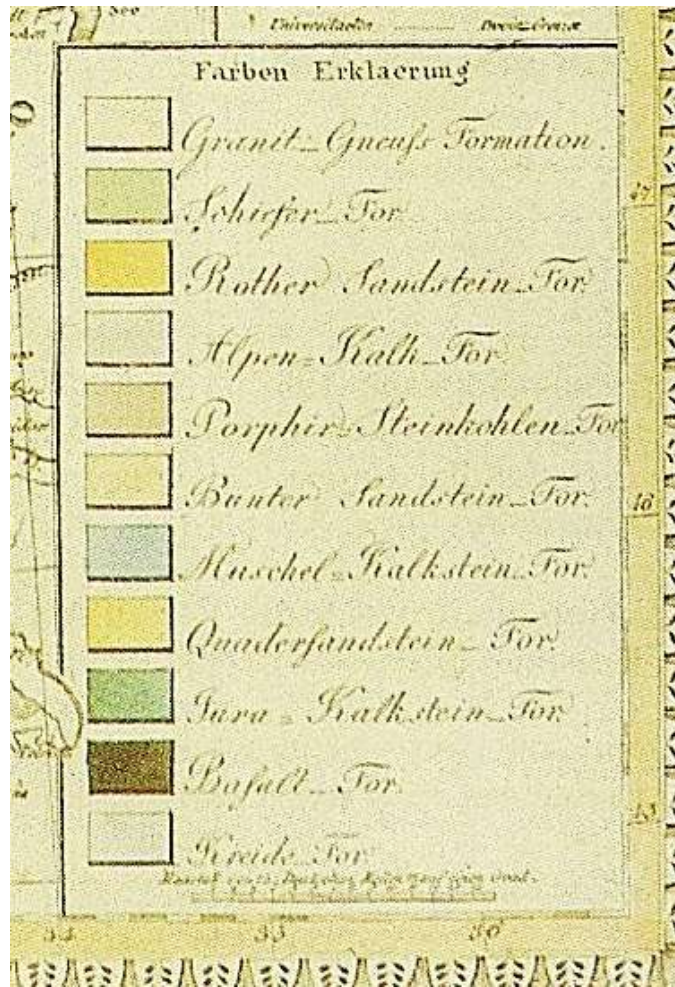 Universitaeten Provinz Grenze
Farben Erklaerung
Granit-Gneuſs Formation.
Schiefer-For
Rother Sandstein-For.
Alpen-Kalk-For
Porphir-Steinkohlen-For
Bunter Sandstein-For.
Muschel-Kalkstein-For.
Quaderſandstein-For.
Jura-Kalkstein-For
Baſalt-For
Kreide-For
47
46
45
34
35
36